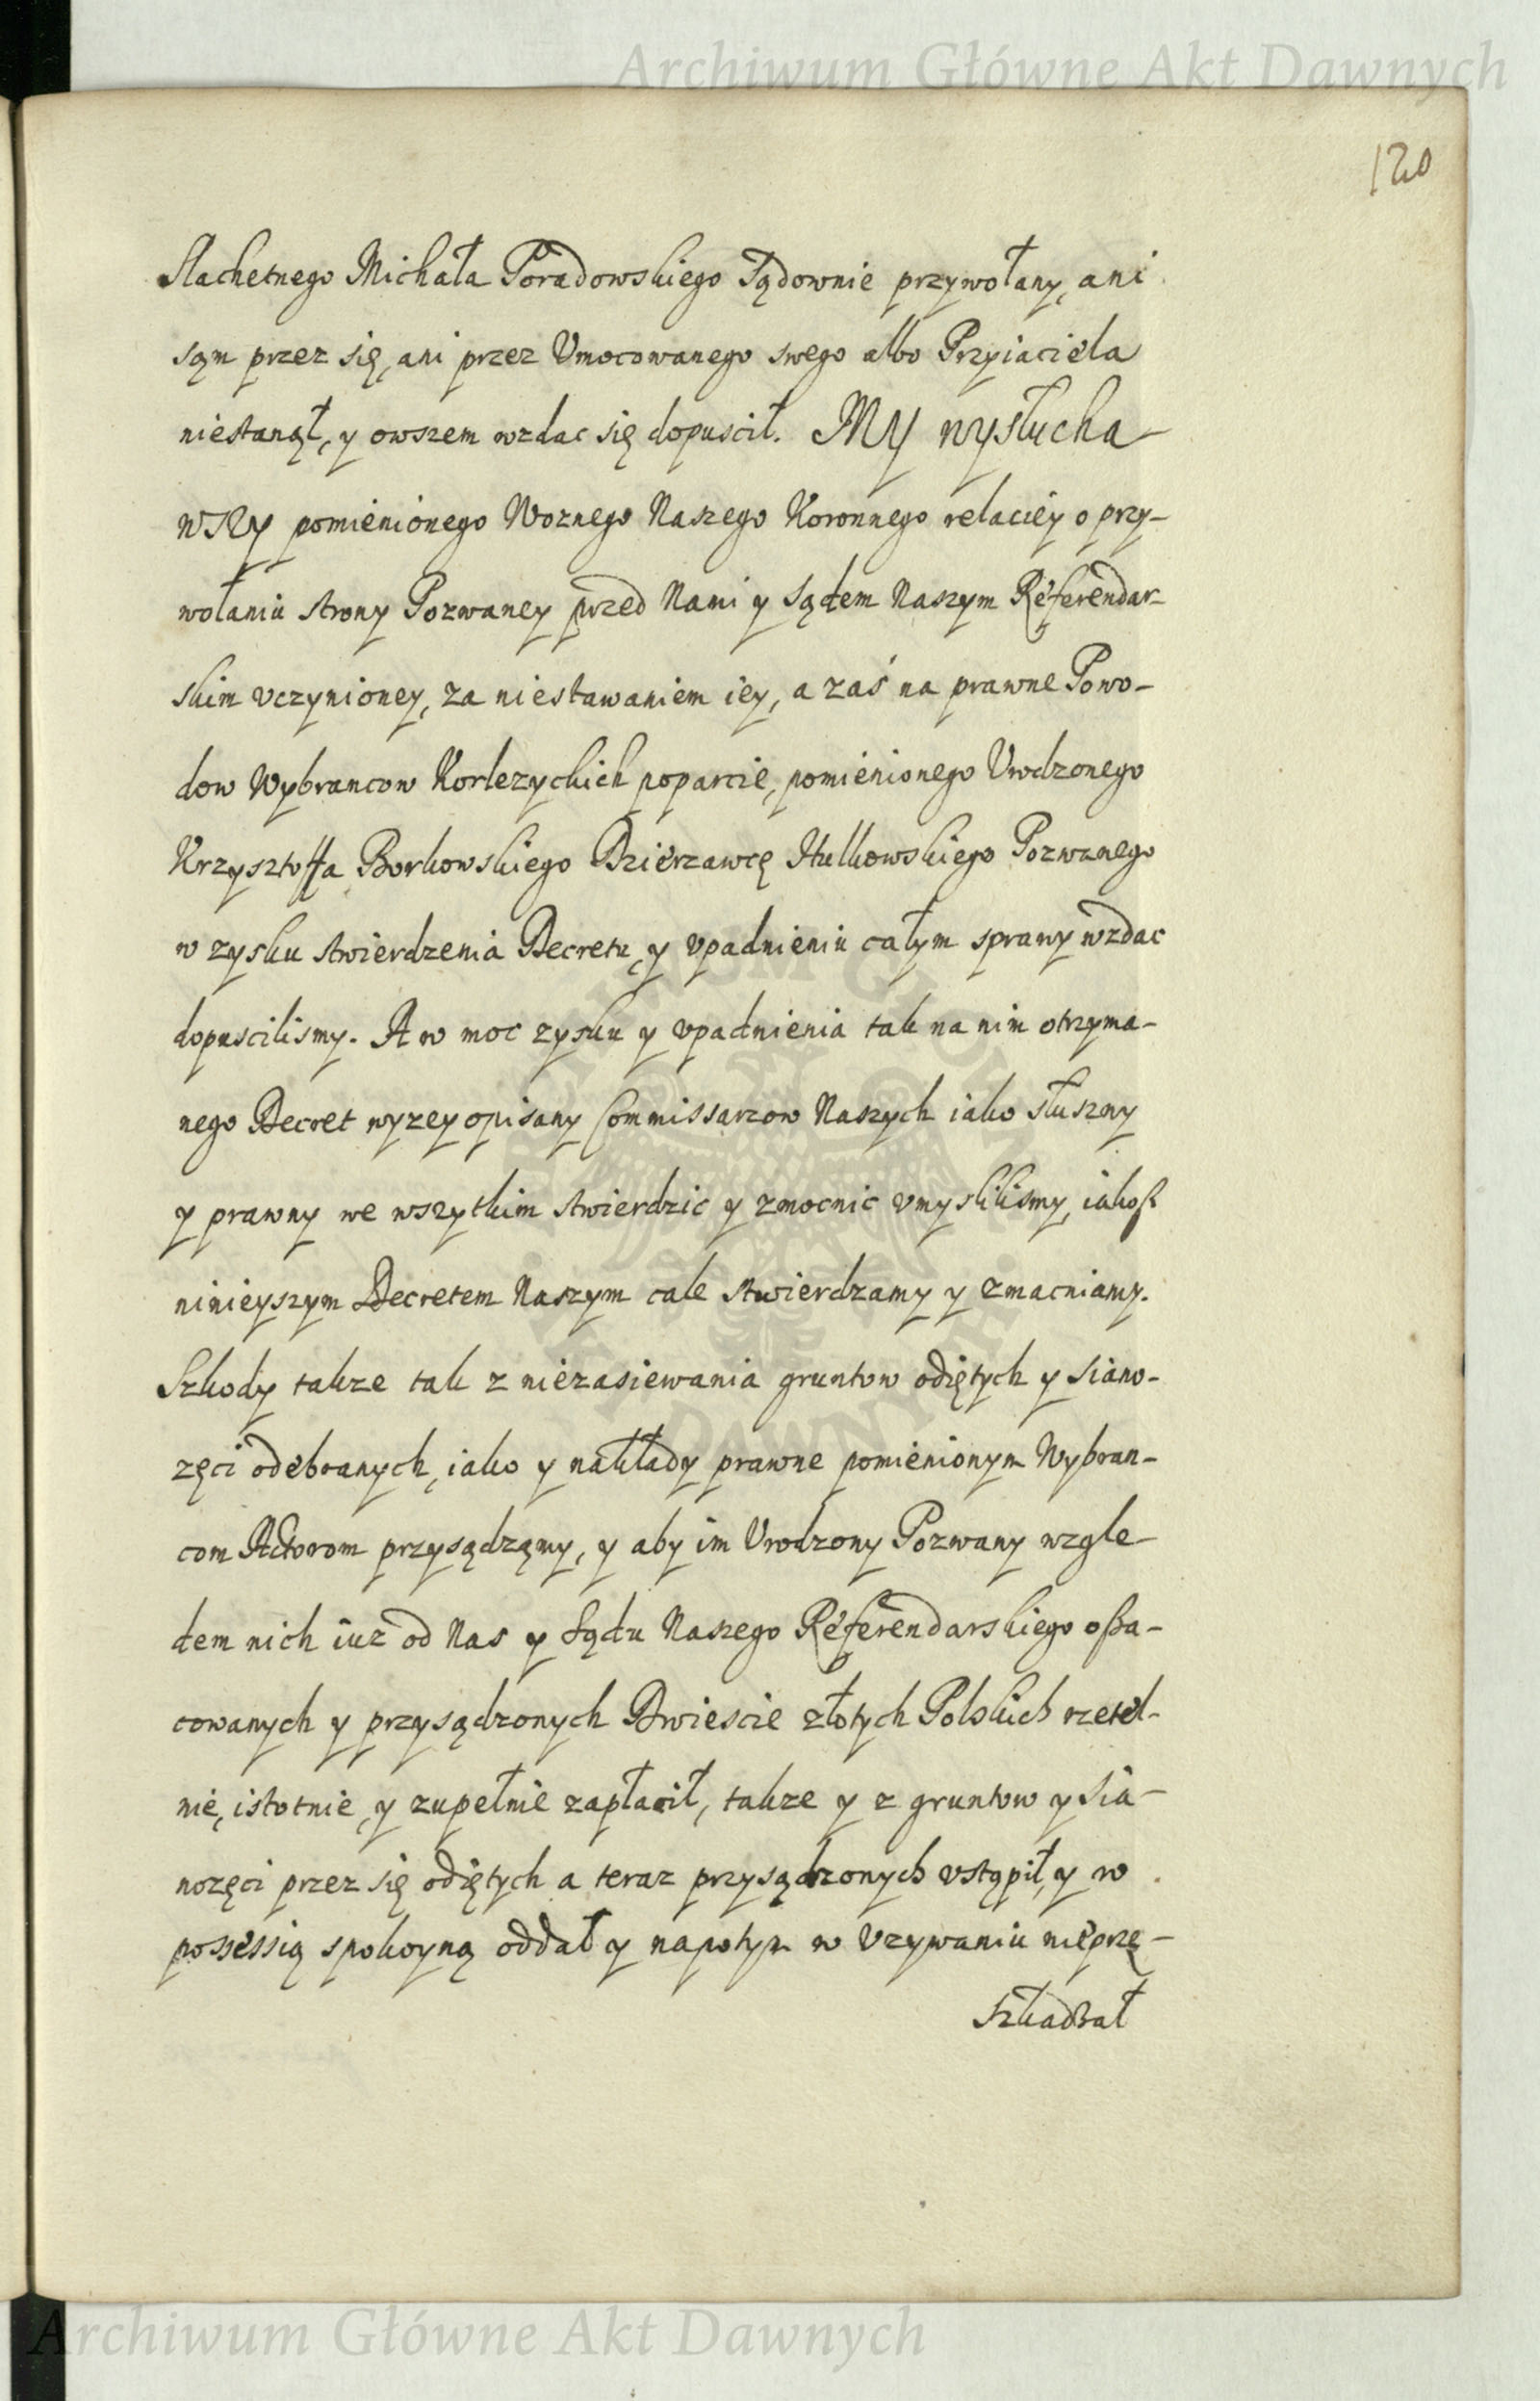 Archiwum Główne Akt Dawnych
120
Slachetnego Michała Poradowskiego Sądownie przywołany, ani
sąm przez się, ani przez Vmocowanego swego albo Przyiaciela
niestanął, y owszem wzdac się dopuscił. MY wysłucha-
wszy pomienionego Woznego Naszego Koronnego relaciey o przy-
wołaniu strony Pozwaney przed Nami y Sądem Naszym Referendar-
skim vczynioney, za niestawaniem iey, a zaś na prawne Powo-
dow Wybrancow Korlezyckich poparcie, pomienionego Vrodzonego
Krzysztoffa Borkowskiego Dzierzawcę Hulkowskiego Pozwanego
w zysku stwierdzenia Decretu, y vpadnieniu całym sprawy wzdac
dopuscilismy. A w moc zysku y vpadnienia tak na nim otrzyma-
nego Decret wyzey opisany Commissarzow Naszych iako słuszny
y prawny we wszytkim stwierdzic y zmocnic vmyslilismy, iakoſz
ninieyszym Decretem Naszym cale stwierdzamy y zmacniamy.
Szkody takze tak z niezasiewania gruntow odiętych y siano-
zęci odebranych, iako y nakłady prawne pomienionym Wybran-
com Actorom przysądzamy, y aby im Vrodzony Pozwany wzgle-
dem nich iuz od Nas y Sądu Naszego Referendarskiego oßa-
cowanych y przysądzonych Dwiescie złotych Polskich rzetel-
nie, istotnie, y zupełnie zapłacił, takze y z gruntow y sia-
nozęci przez się odiętych a teraz przysądzonych vstąpił, y w
possessią spokoyną oddał y napotym w vzywaniu nieprze-
szkadzał
Archiwum Główne Akt Dawnych